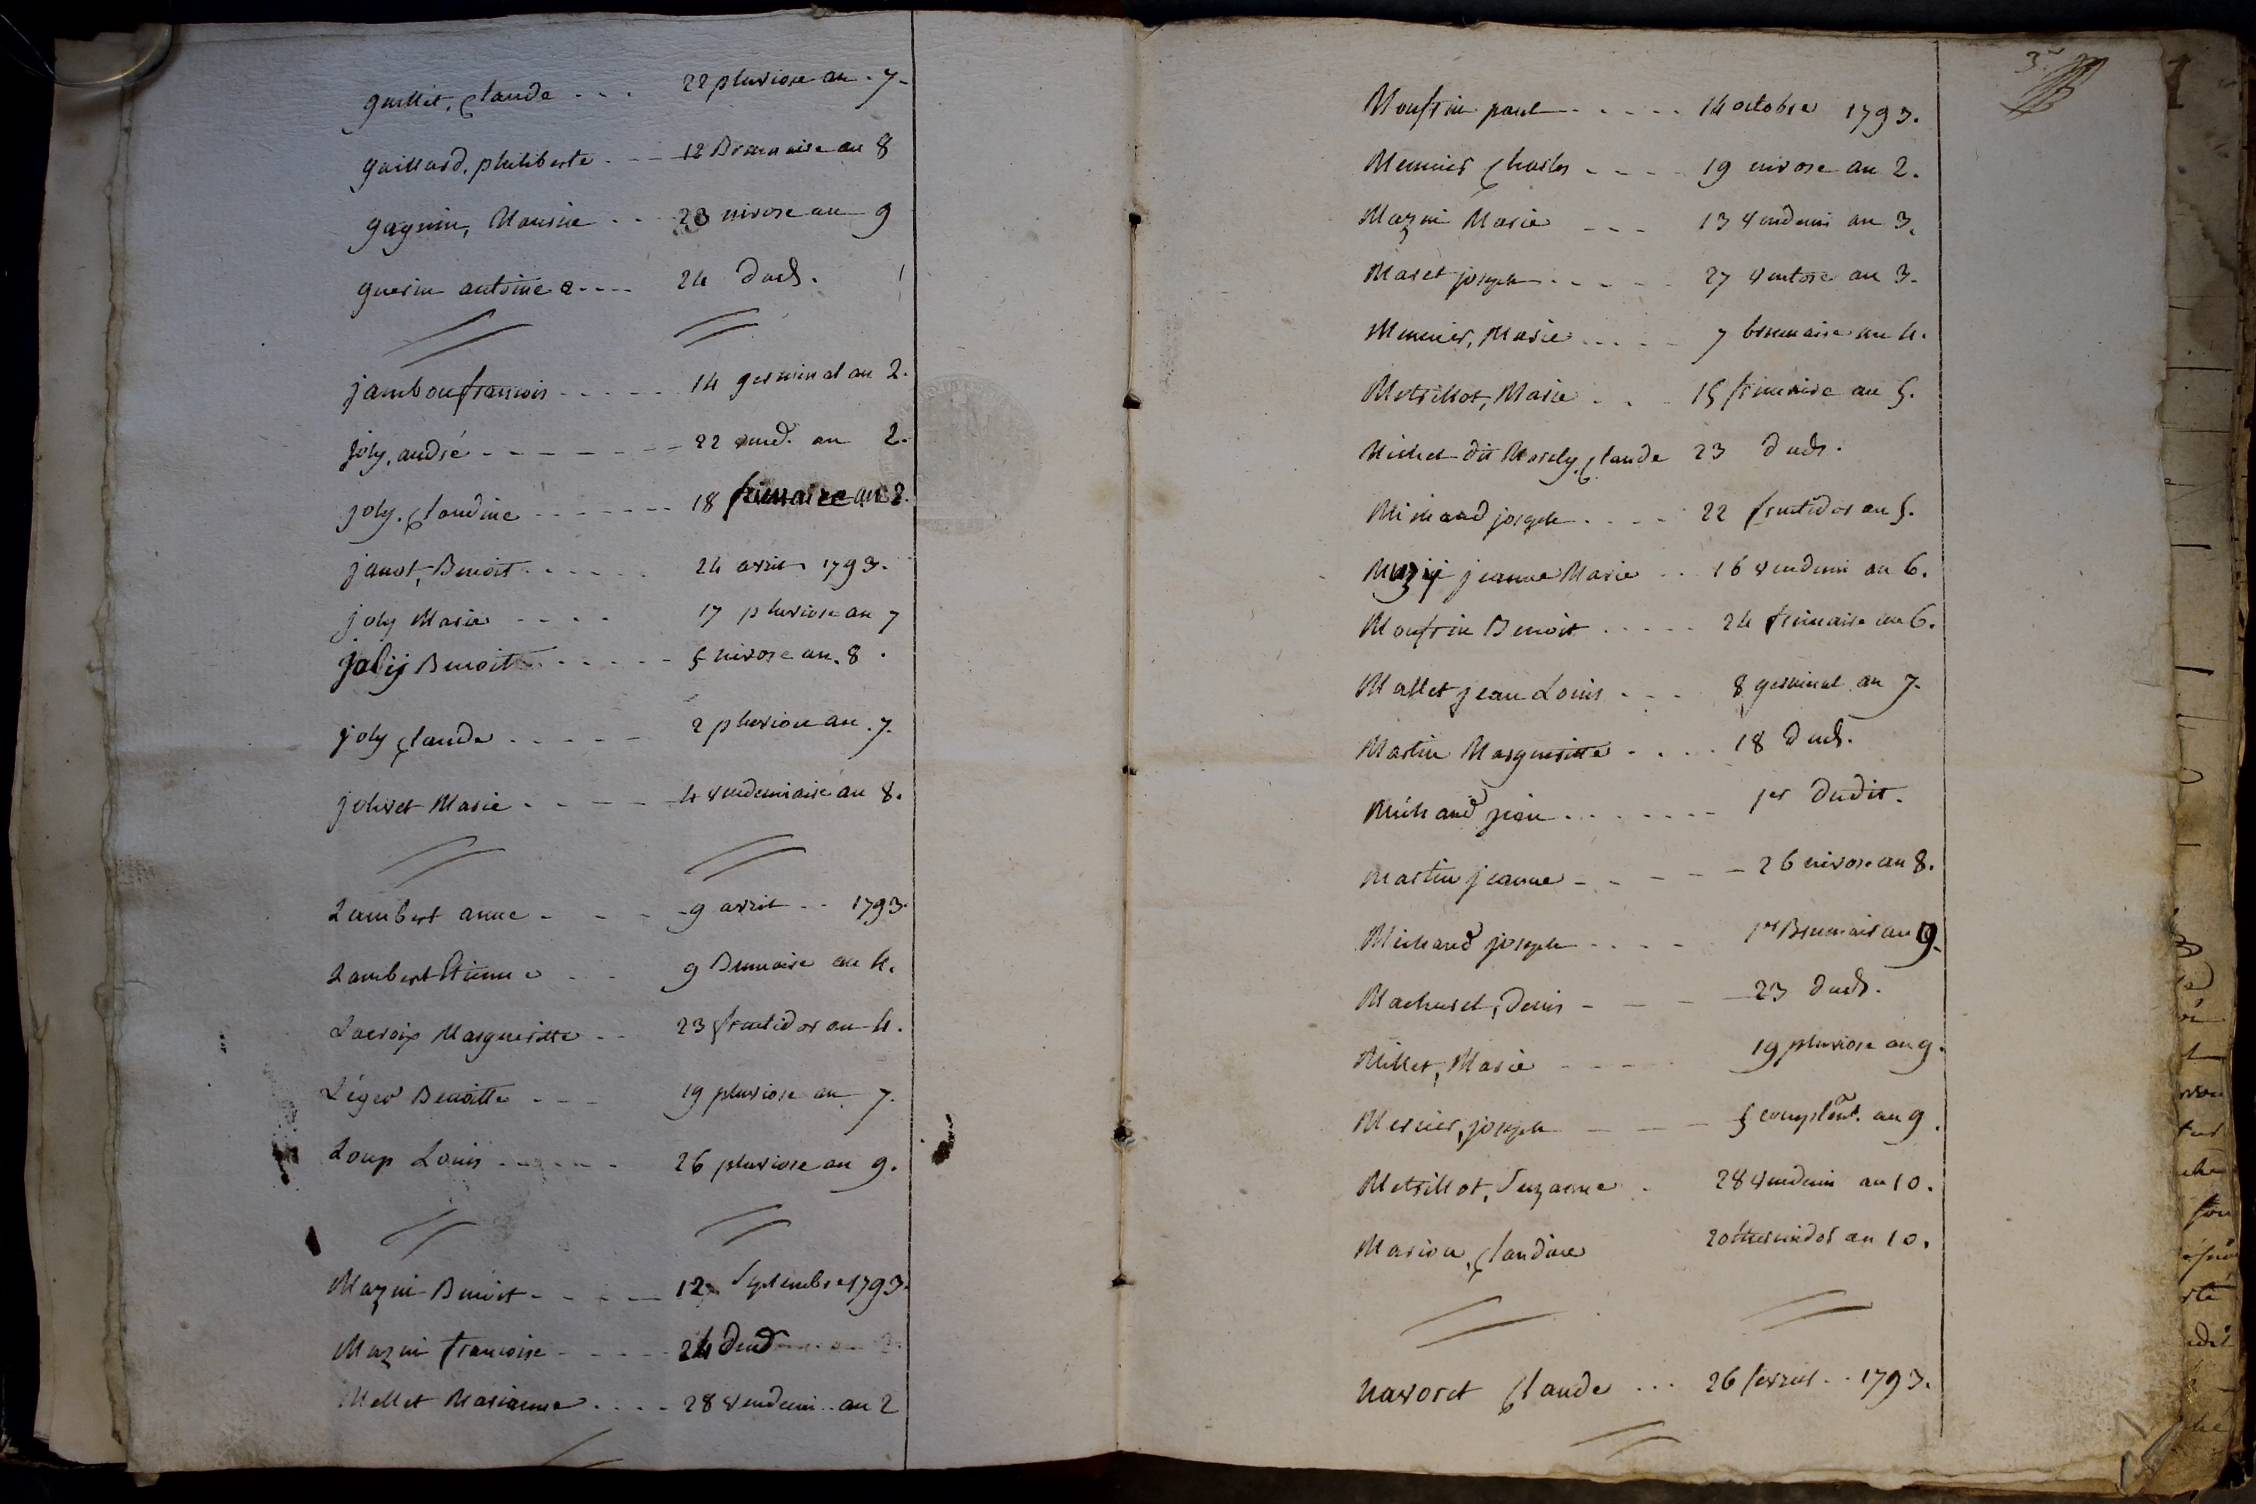 guillet, Claude . . . 22 pluviose an . 7 .
gaillard, philiberte . . . 12 Brumaire an 8
gagnin, Maurice . . 23 nivose an 9
guerin antoine . . . . 24 dud.
jambon francois . . . . . 14 germinal an 2.
joly, andré - - - - - - 22 vend. an 2.
joly, Claudine - - - - - - 18 frimaire an 2.
janot, Benoit . . . . . 24 avril 1793.
joly Marie - - - - 17 pluviose an 7
joly Benoit . . . . . 5 nivose an . 8 .
joly Claude . . . . . 2 pluviose an . 7.
jolivet Marie - - - - - 4 vendemiaire an 8.
Lambert anne - - - - 9 avril - - 1793.
Lambert Etienne - - 9 Brumaire an 4.
Lacroix Margueritte - - 23 fructidor an 4.
Léger Benoitte - - - 19 pluviose an 7.
Loup Louis - - - - - 26 pluviose an 9.
Mazui Benoit - - - - - 12 Septembre 1793.
Mazui francoise - - - - - 24 dud
Mellet Marianne . . . . 28 vendemi . . an 2
3e
Monfrin paul - - - - - 14 octobre 1793.
Meunier Charles - - - - 19 nivose an 2.
Mazui Marie - - - 13 vendemi an 3.
Maret joseph - - - - - 27 ventose an 3.
Meunier, Marie . . . . . 7 brumaire an 4.
Metrillot, Marie . . . 15 frimaire an 5.
Michel dit Marely, Claude 23 dud.
Michaud joseph . . . . 22 fructidor an 5.
jeanne Marie . . 16 vendemi an 6.
Monfrin Benoit . . . . . 24 frimaire an 6.
Mallet jean Louis . . . 8 germinal an 7.
Martin Margueritte . . . . 18 dud.
Michaud jean . . . . . . . 1er dudit.
Martin jeanne - - - - - 26 nivose an 8.
Michaud joseph . . . . 1er Brumaire an 9.
Machuret, Denis - - - - 23 dud.
Millet, Marie - - - - 19 pluviose an 9.
Mercier, joseph - - - - 5 complent. an 9.
Metrillot, Suzanne . 28 vendemi an 10.
Marion, Claudine 20 thermidor an 10.
Navoret Claude . . . 26 fevrier . . 1793.